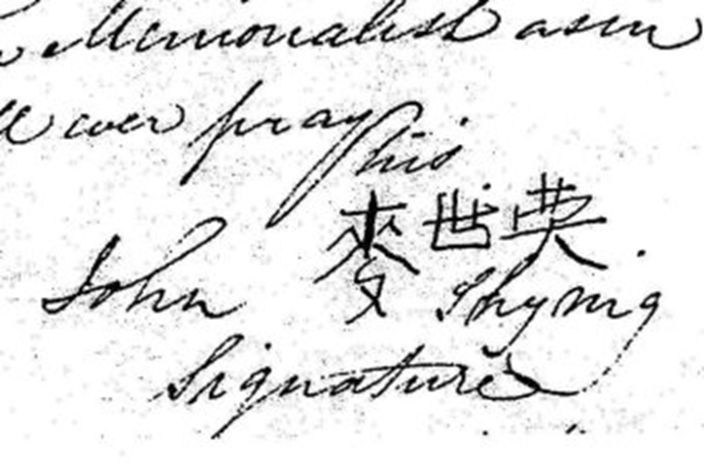 Memorialist as in
ever pray
his
麥世英
John Shying
Signature